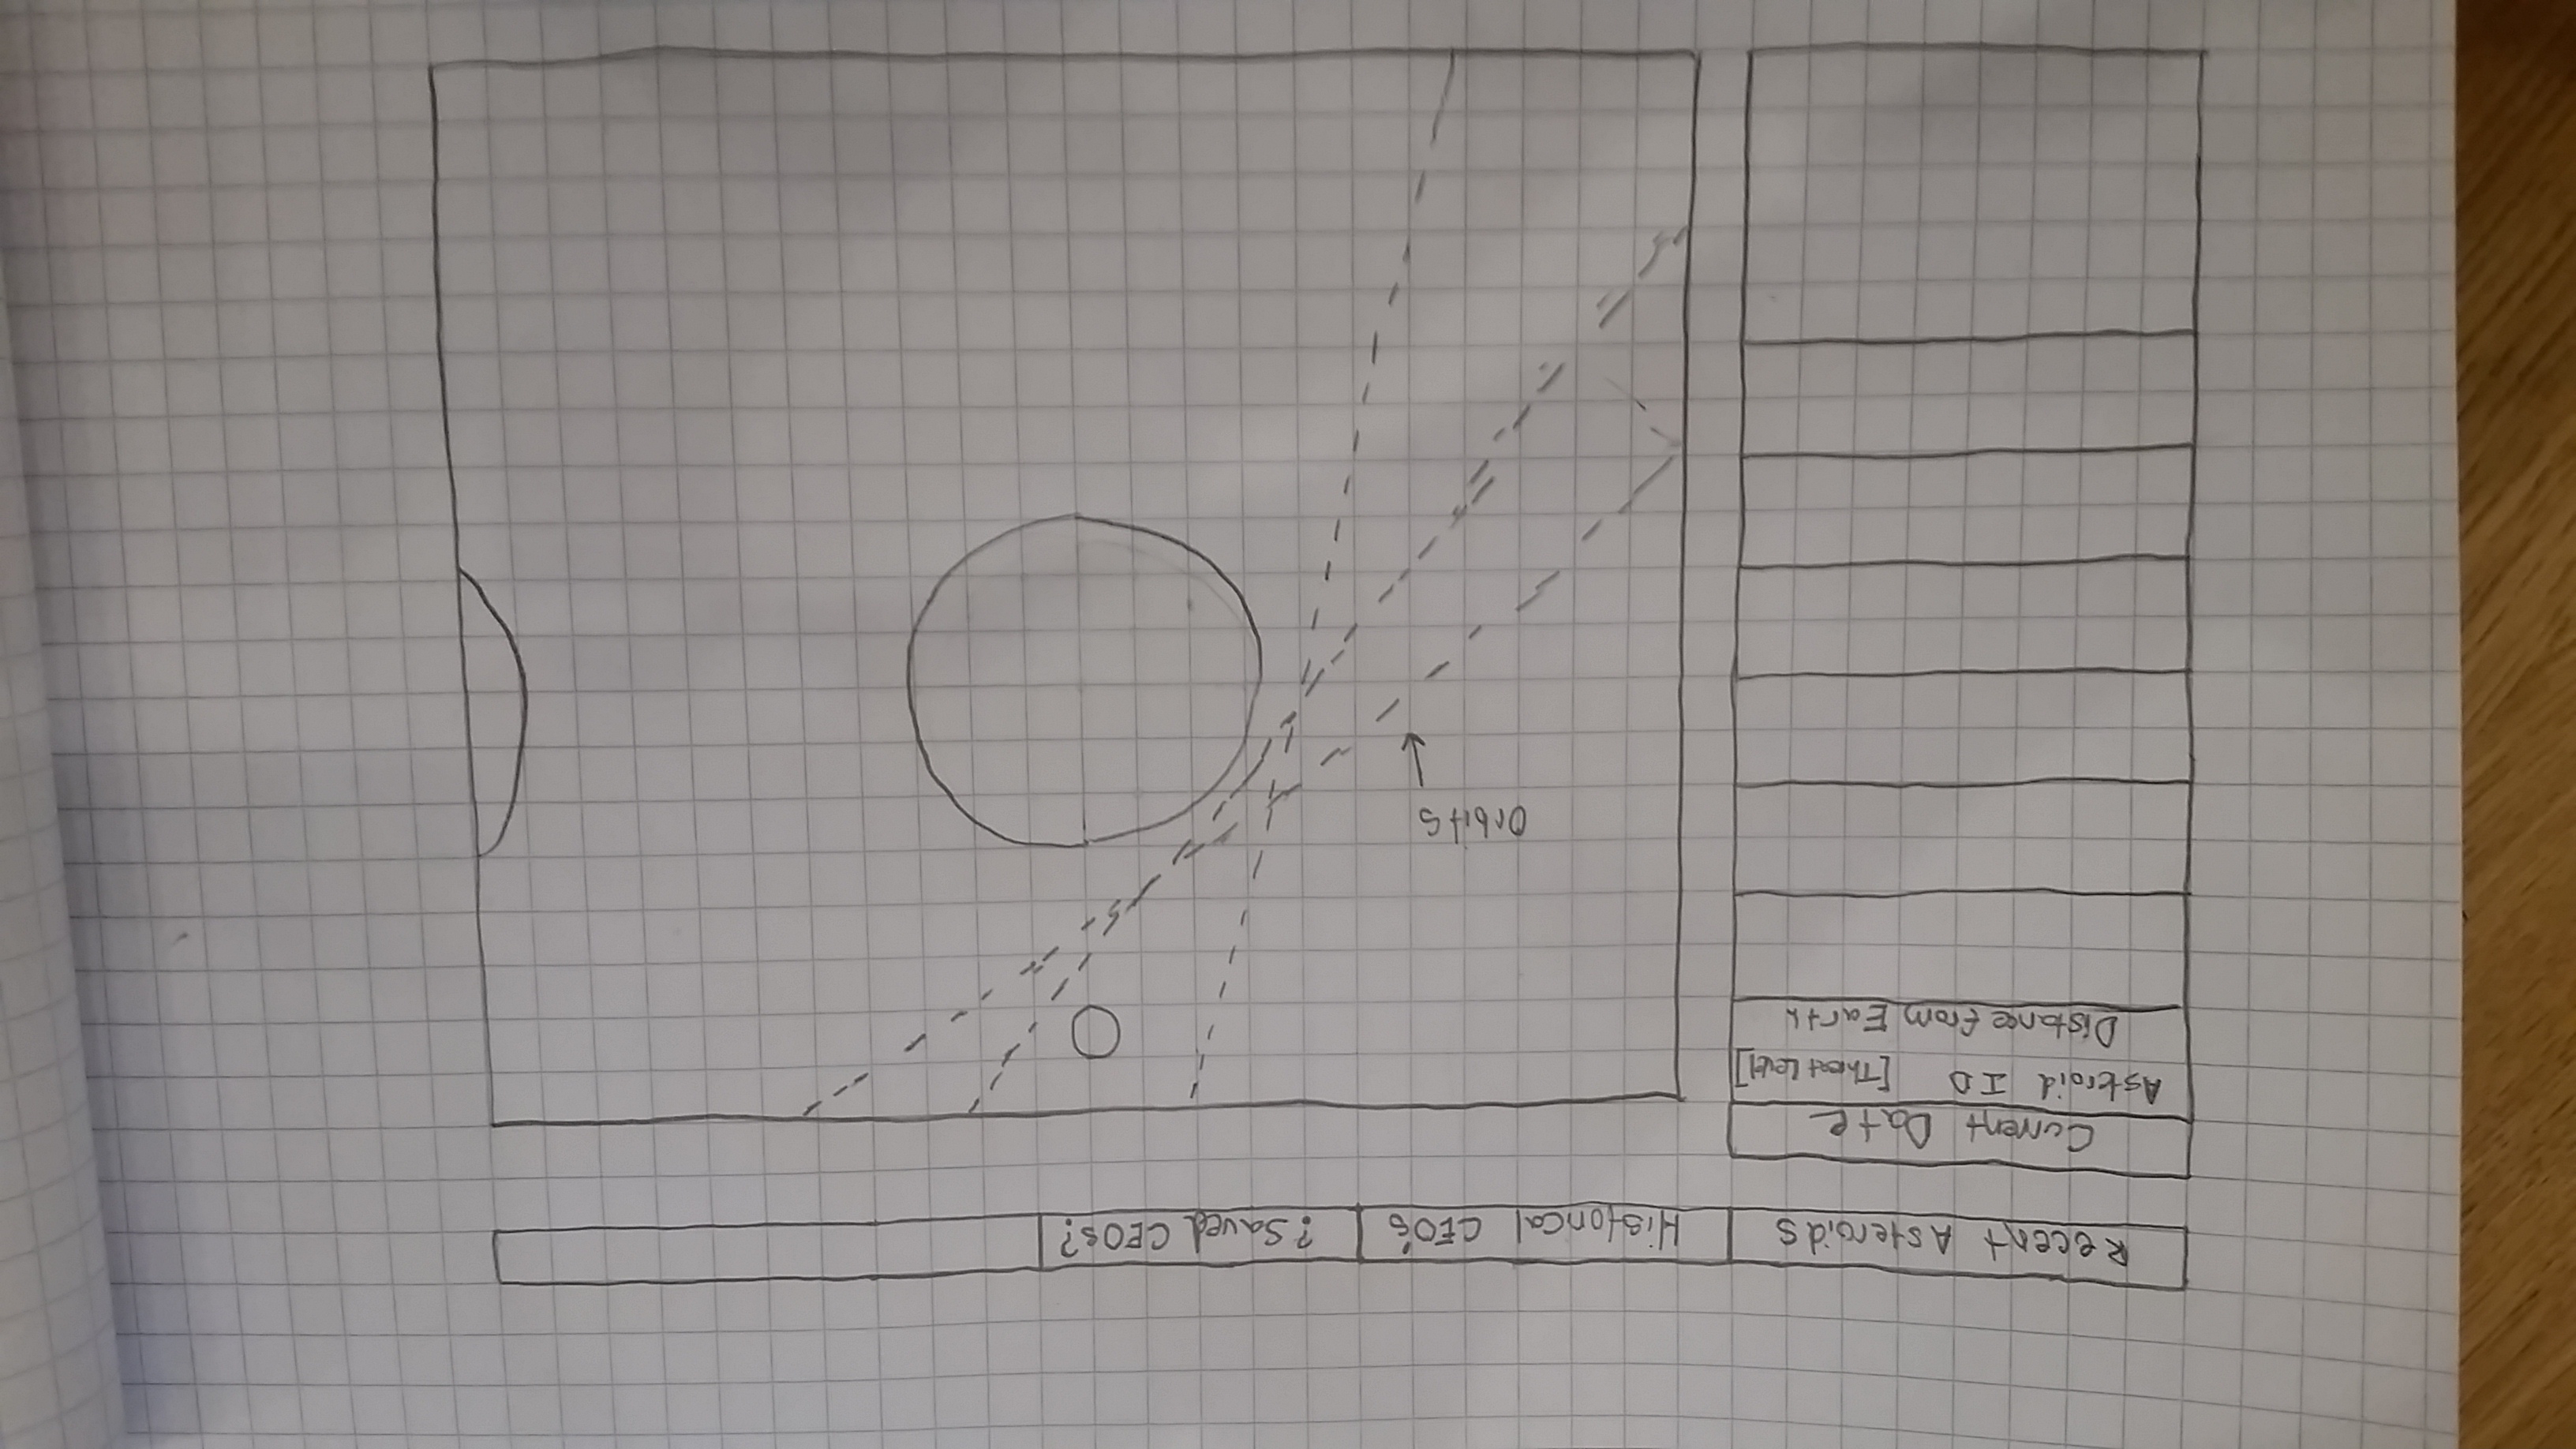 Recent Asteroids
Historical CEO's
? Saved CEOs?
Current Date
Asteroid ID [Threat Level]
Distance from Earth
Orbits